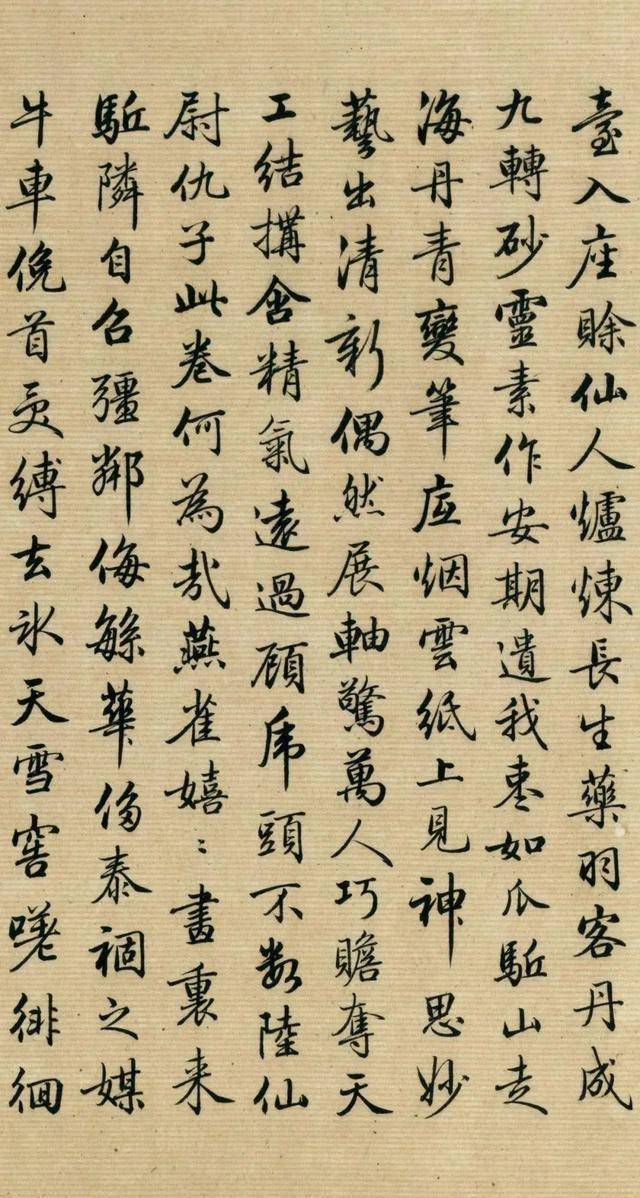 臺入座賒仙人爐煉長生藥羽客丹成
九轉砂靈素作安期遺我棗如瓜駈山走
海丹青變筆底烟雲紙上見神思妙
藝出清新偶然展軸驚萬人巧贍奪天
工結搆含精氣遠過顧虎頭不数陸仙
尉仇子此卷何為哉燕雀嬉〻畫裏来
駈隣自召彊鄰侮緐華侈泰禍之媒
牛車俛首受縛去氷天雪窖嘆徘徊